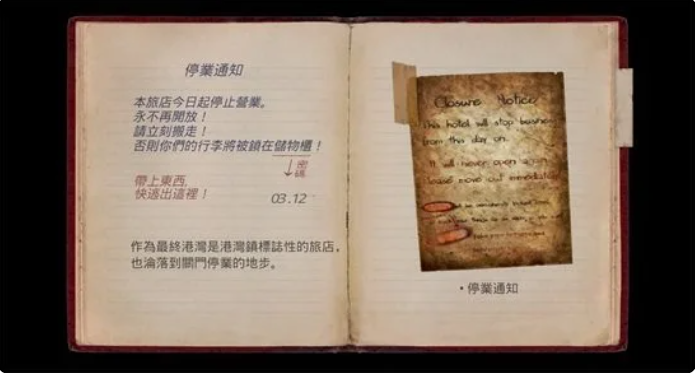 停業通知
本旅店今日起停止營業。
永不再開放！
請立刻搬走！
否則你們的行李將被鎖在儲物櫃！
密碼
帶上東西,
快逃出這裡！
03.12
作為最終港灣是港灣鎮標誌性的旅店，
也淪落到關門停業的地步。
Closure Notice
This hotel will stop business
from this day on.
It will never open again
please move out immediately
・停業通知